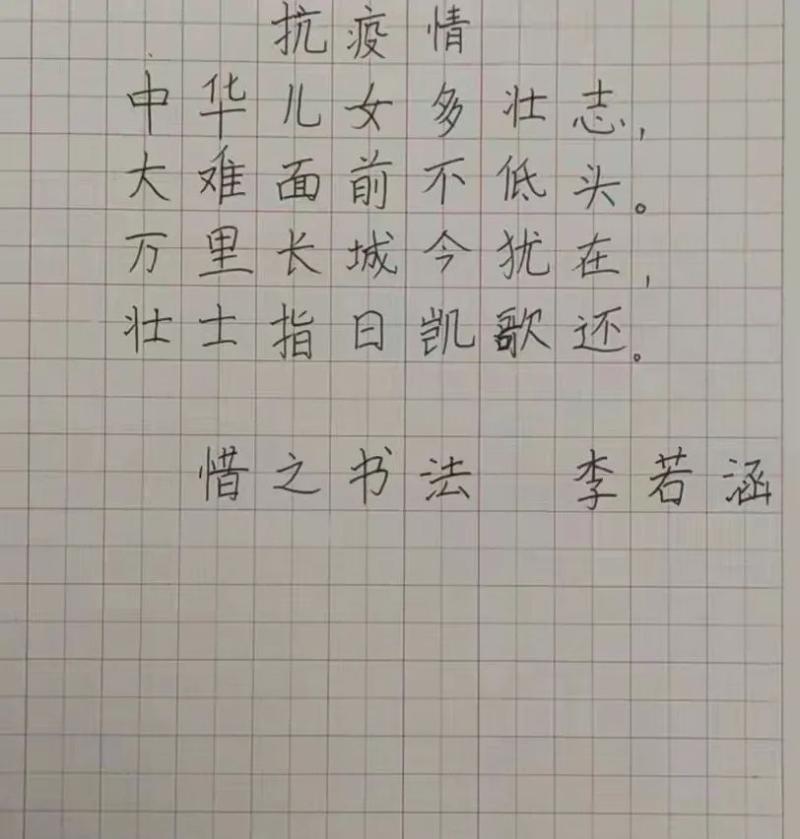 抗疫情
中华儿女多壮志,
大难面前不低头。
万里长城今犹在,
壮士指日凯歌还。
惜之书法 李若涵